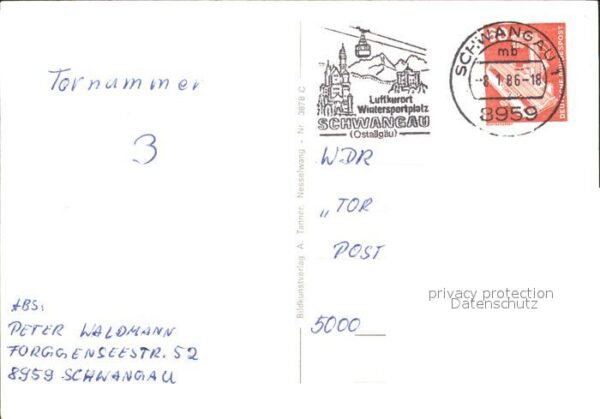 Tornummer
3
ABS:
PETER WALDMANN
FORGGENSEESTR. 52
8959 SCHWANGAU
Bildkunstverlag A. Tanner, Nesselwang - Nr. 3878 C
Luftkurort
Wintersportplatz
SCHWANGAU
(Ostallgäu)
SCHWANGAU 1
mb
-8.1.86-18
8959
DEUTSCHE BUNDESPOST
WDR
„TOR
POST
5000
privacy protection
Datenschutz